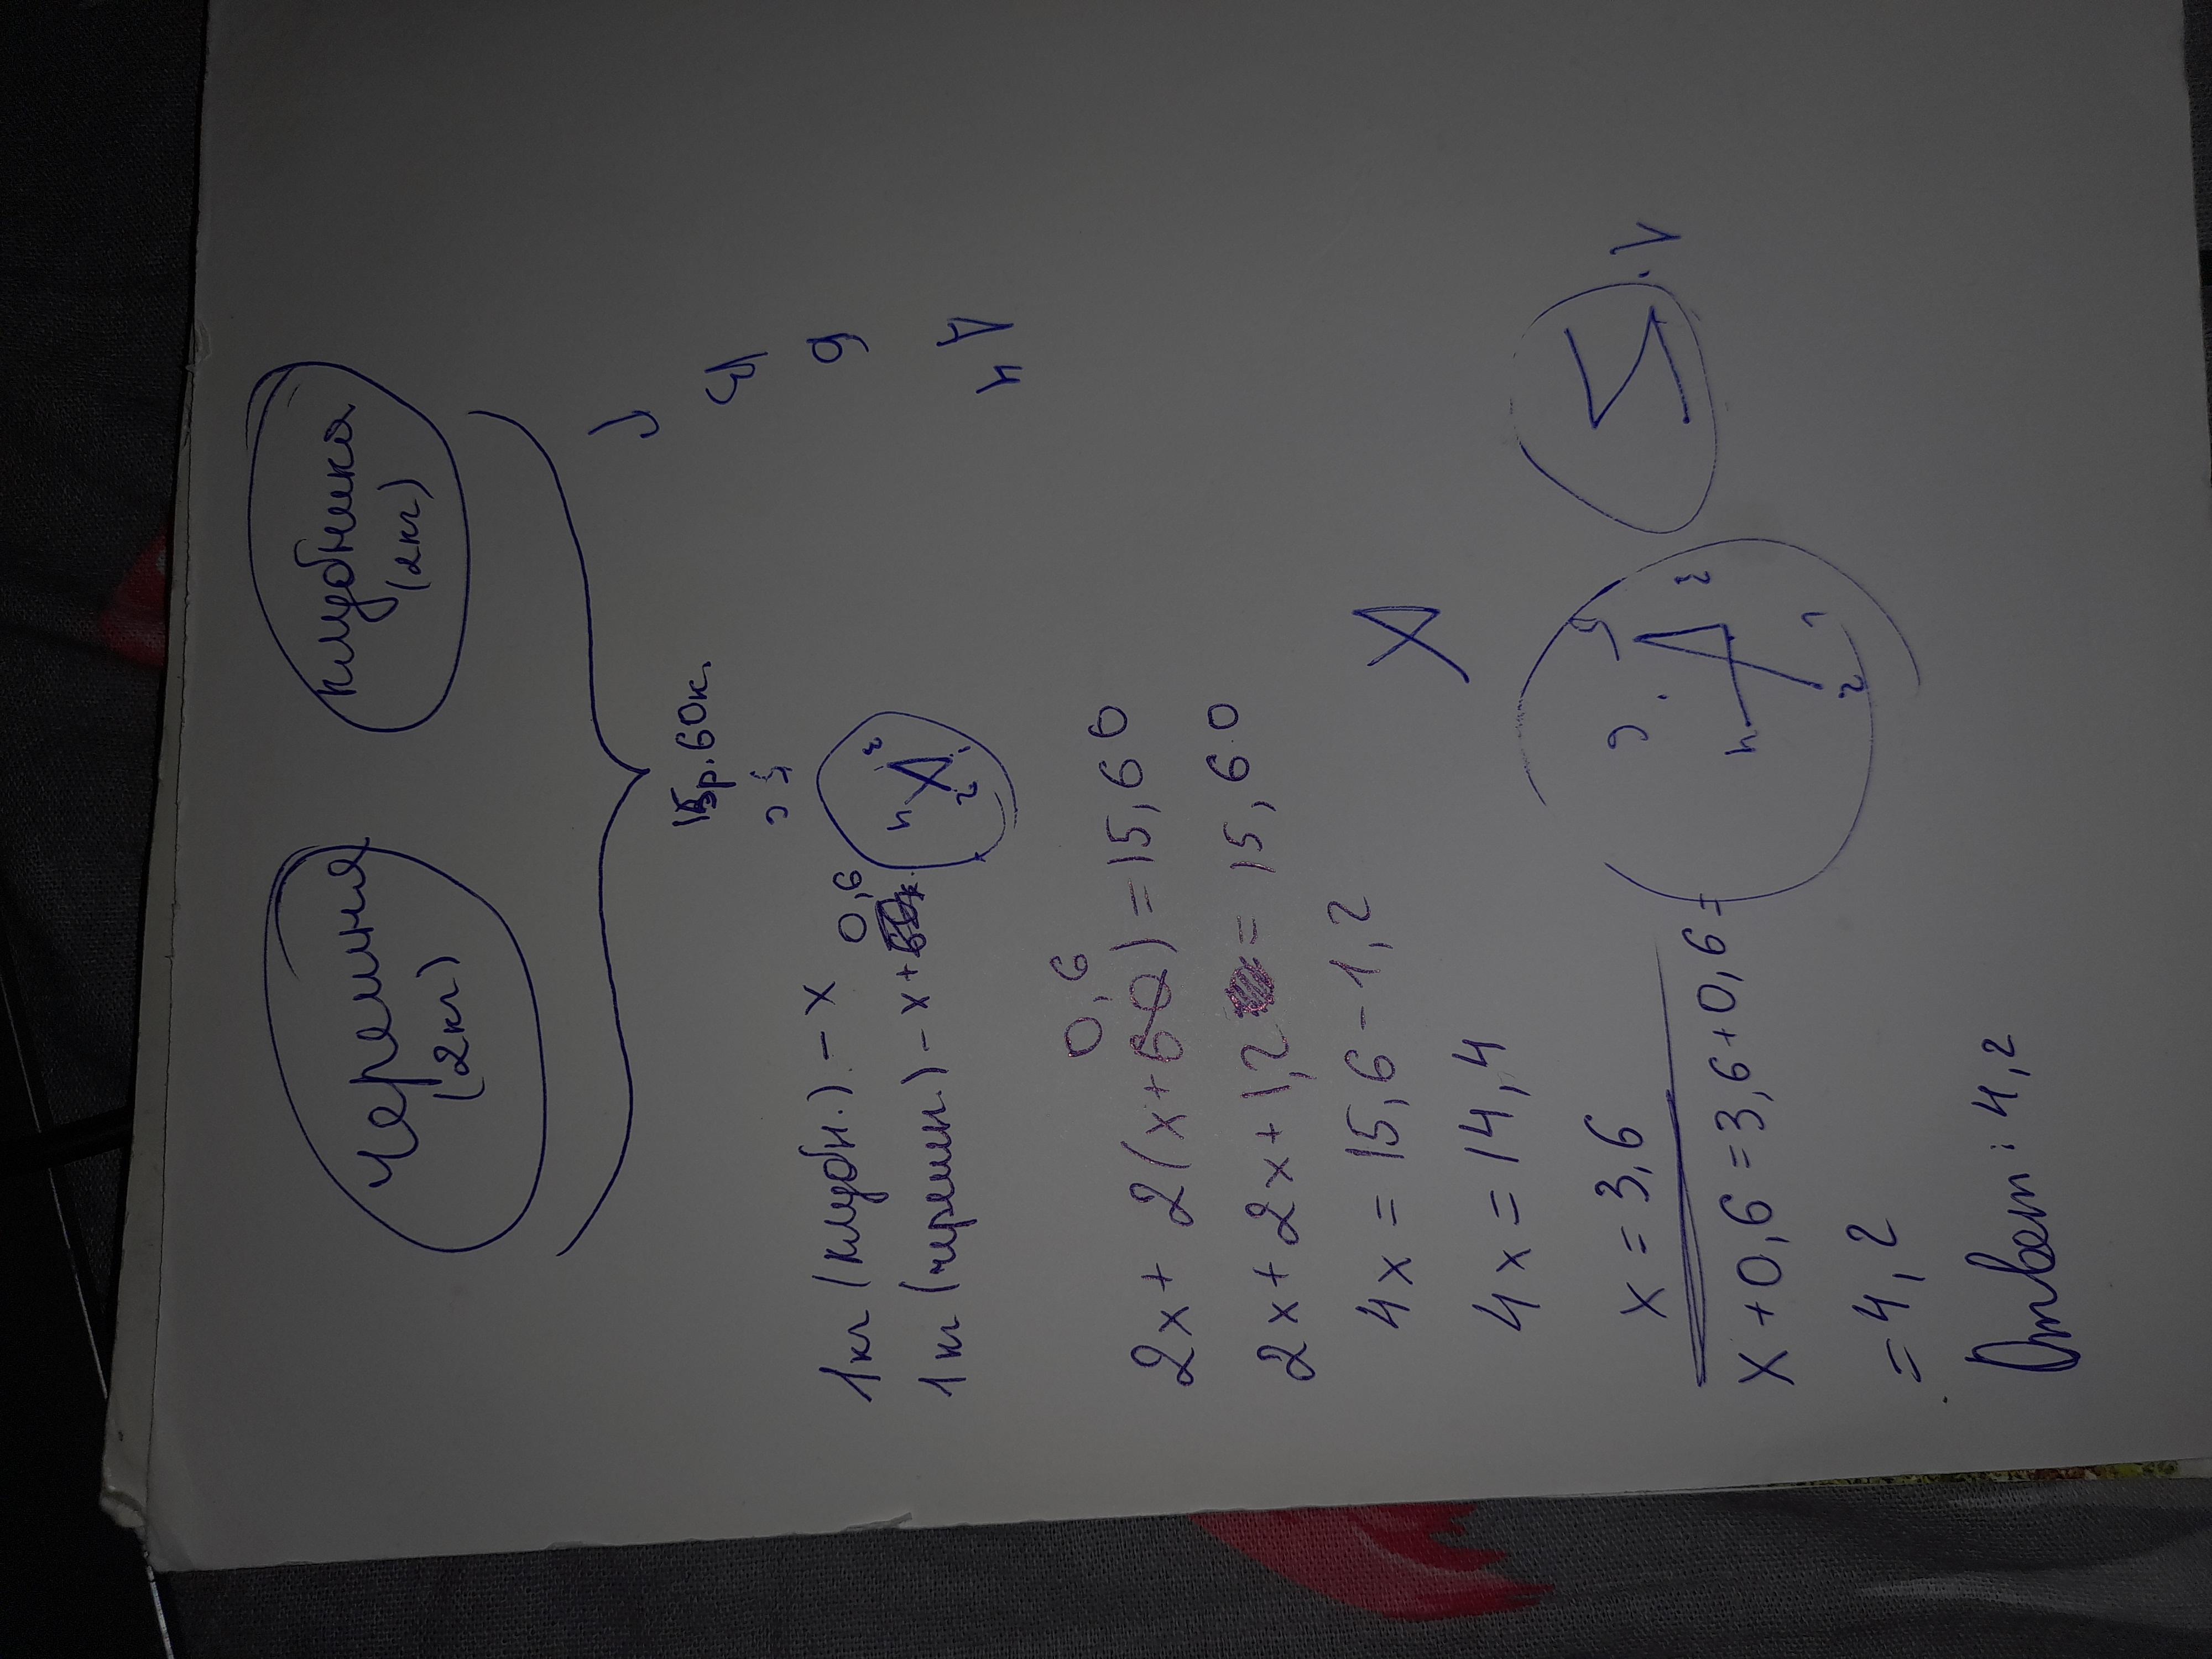 Черешня
(2кг)
клубника
(2кг)
15р. 60к.
1кг (клубн.) - x
0,6
1кг (череш.) - x +
ч
3
2
1
0,6
2x + 2(x + 60) = 15,60
2x + 2x + 1,2 = 15,60
4x = 15,6 - 1,2
4x = 14,4
x = 3,6
x + 0,6 = 3,6 + 0,6 =
= 4,2
Ответ: 4,2